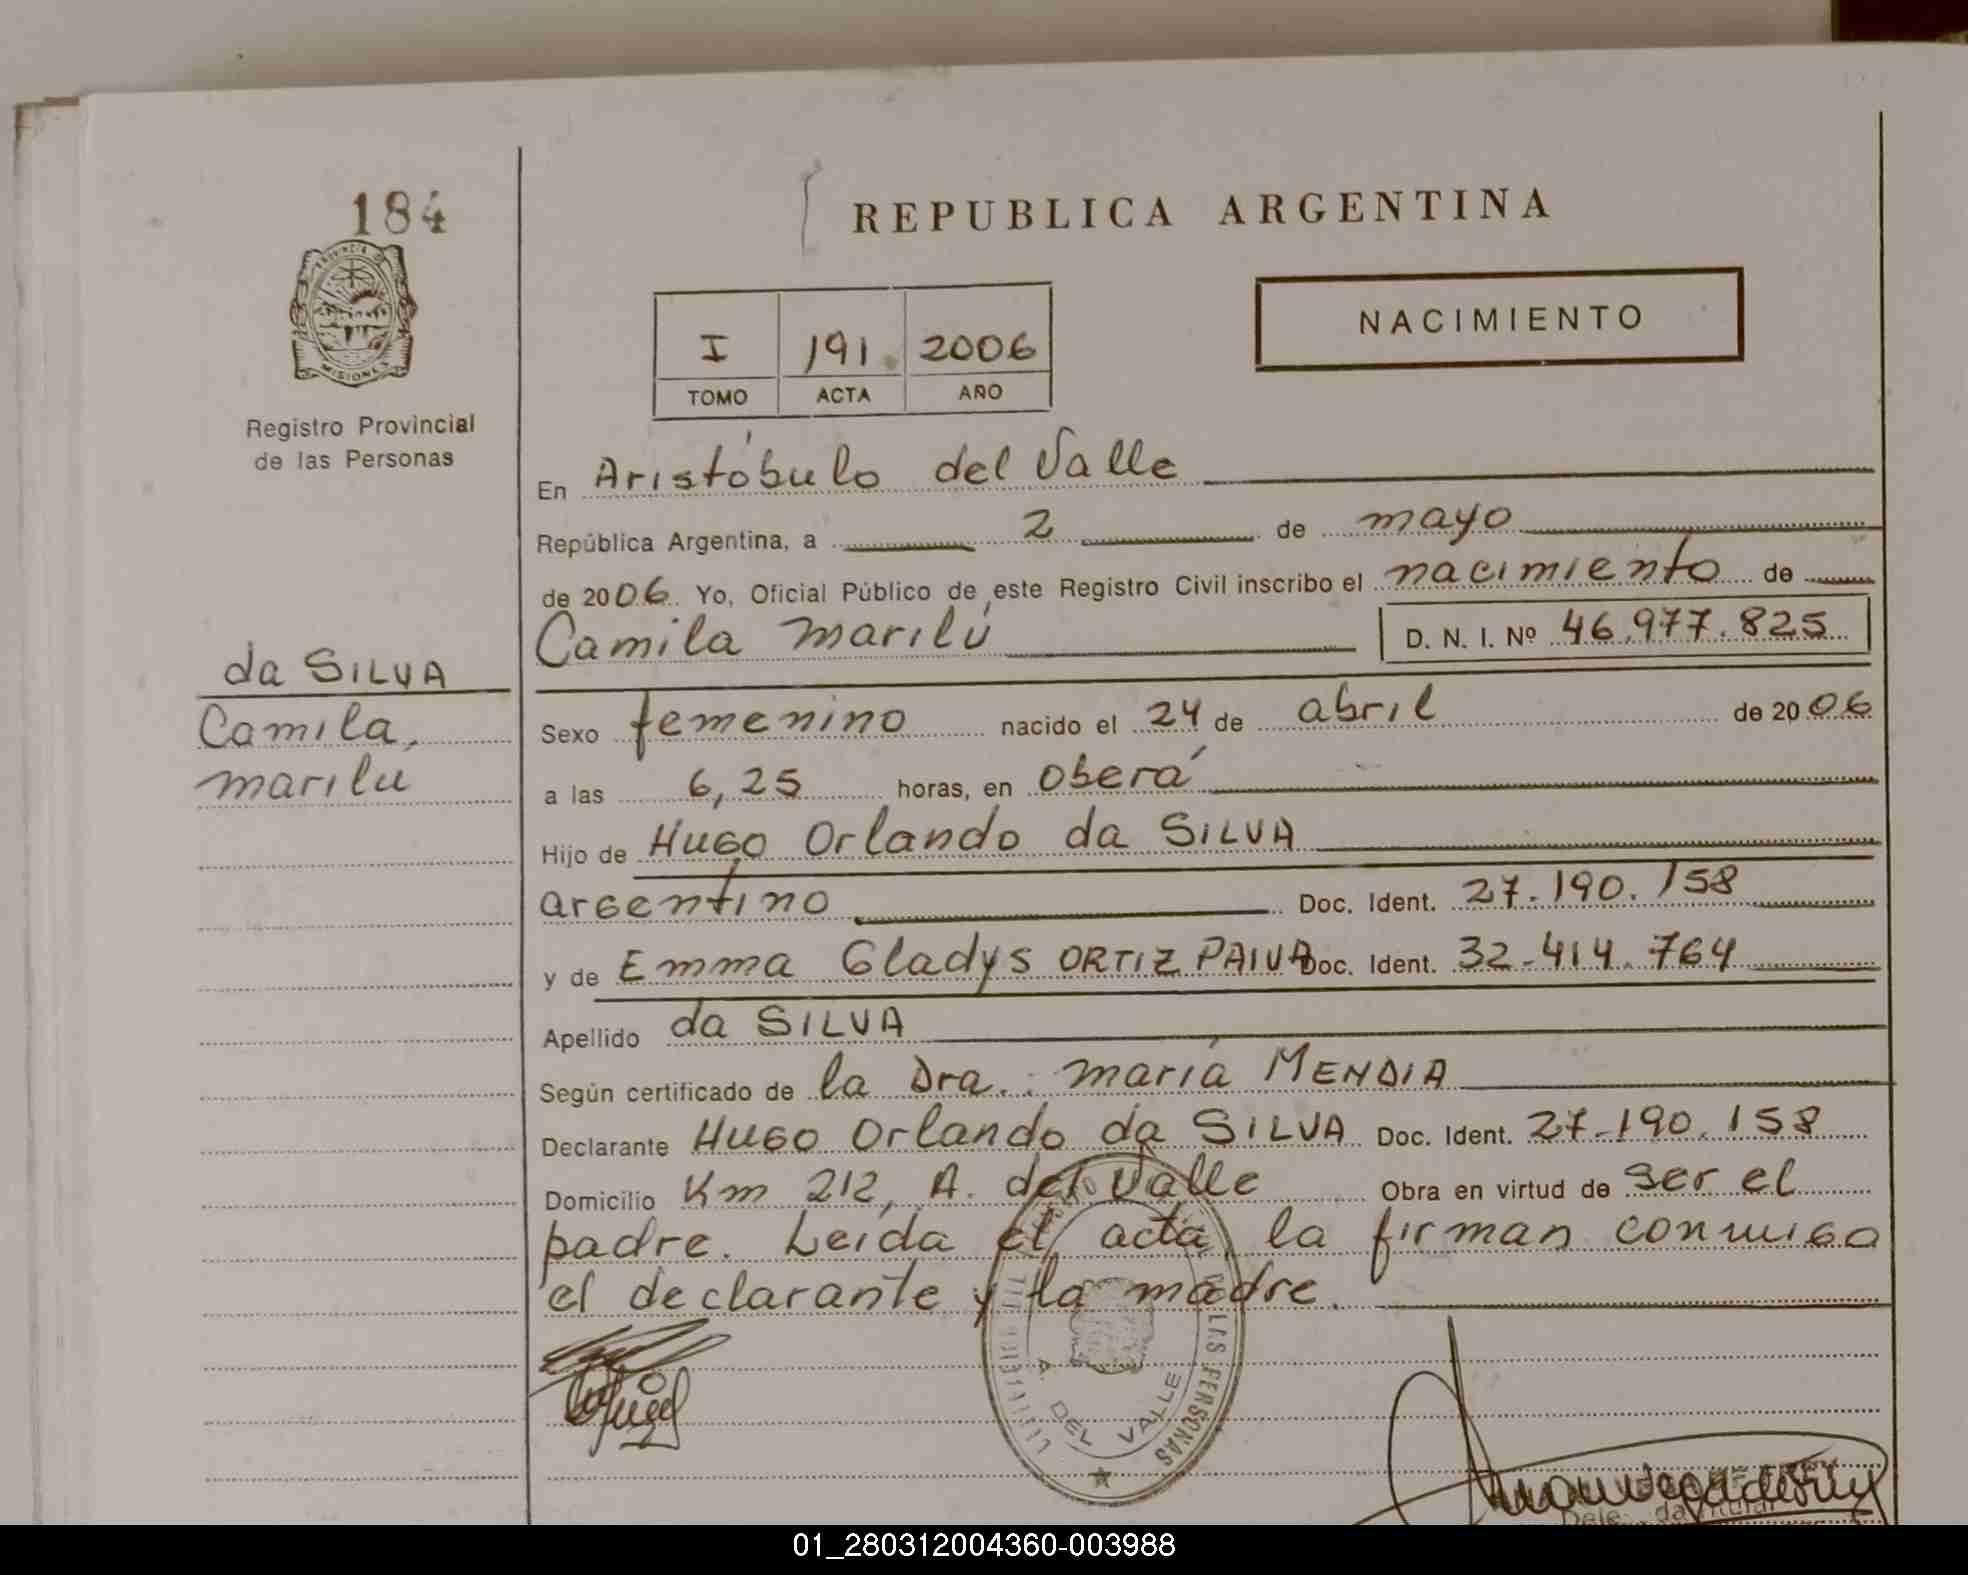 184
PROVINCIA DE
MISIONES
Registro Provincial
de las Personas
da SILVA
Camila,
Marilu
REPUBLICA ARGENTINA
NACIMIENTO
I 191 2006
TOMO ACTA AÑO
En Aristóbulo del Valle
República Argentina, a 2 de mayo
de 2006. Yo, Oficial Público de este Registro Civil inscribo el nacimiento de
Camila Marilú D. N. I. Nº 46.977.825
Sexo femenino nacido el 24 de abril de 2006
a las 6,25 horas, en Oberá
Hijo de Hugo Orlando da SILVA
argentino Doc. Ident. 27.190.158
y de Emma Gladys ORTIZ PAIVA Doc. Ident. 32.414.764
Apellido da SILVA
Según certificado de la Dra. María MENDIA
Declarante Hugo Orlando da SILVA Doc. Ident. 27.190.158
Domicilio Km 212, A. del Valle Obra en virtud de ser el
padre. Leída el acta, la firman conmigo
el declarante y la madre.
LAS PERSONAS
A. DEL VALLE
01_280312004360-003988